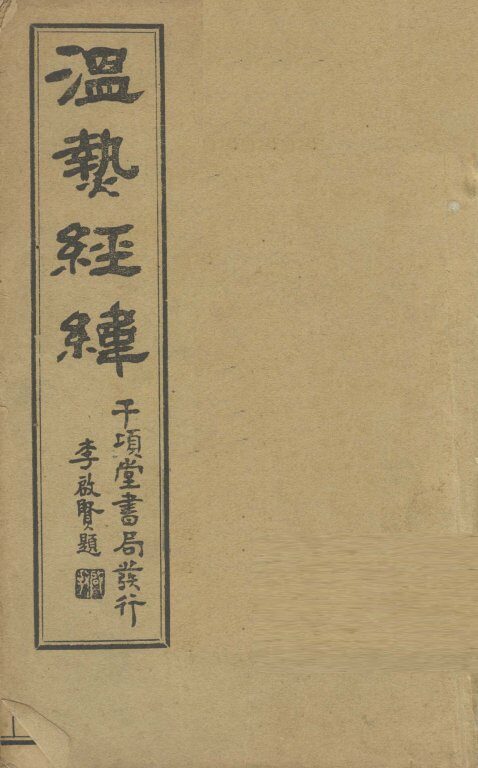 溫熱經緯
千頃堂書局發行
李啟賢題